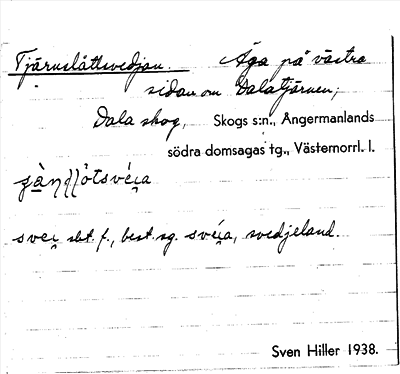 Tjärnslåttsvedjan. Äga på västra
sidan om Dalatjärnen;
Dala skog, Skogs s:n., Ångermanlands
södra domsagas tg., Västernorrl. l.
svei sbt. f., best. sg. svéia, svedjeland.
Sven Hiller 1938.